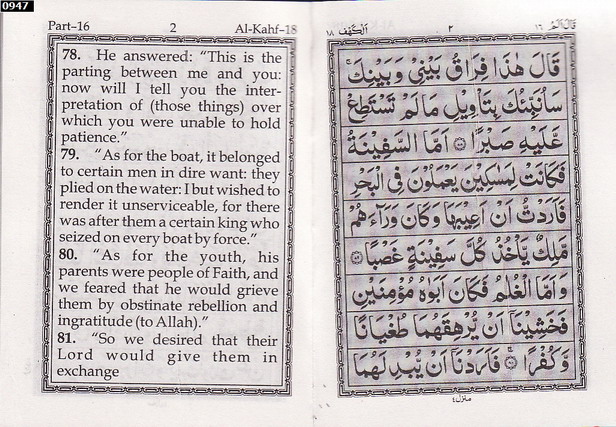 0947
Part-16 2 Al-Kahf-18
78. He answered: "This is the
parting between me and you:
now will I tell you the inter-
pretation of (those things) over
which you were unable to hold
patience."
79. "As for the boat, it belonged
to certain men in dire want: they
plied on the water: I but wished to
render it unserviceable, for there
was after them a certain king who
seized on every boat by force."
80. "As for the youth, his
parents were people of Faith, and
we feared that he would grieve
them by obstinate rebellion and
ingratitude (to Allah)."
81. "So we desired that their
Lord would give them in
exchange
قَالَ اَلَمْ ١٦ ٢ اَلْكَهْف ١٨
قَالَ هٰذَا فِرَاقُ بَيْنِيْ وَبَيْنِكَ ۚ
سَاُنَبِّئُكَ بِتَاْوِيْلِ مَا لَمْ تَسْتَطِعْ
عَّلَيْهِ صَبْرًا ۝٧٨ اَمَّا السَّفِيْنَةُ
فَكَانَتْ لِمَسٰكِيْنَ يَعْمَلُوْنَ فِى الْبَحْرِ
فَاَرَدْتُّ اَنْ اَعِيْبَهَا وَكَانَ وَرَآءَهُمْ
مَّلِكٌ يَّاْخُذُ كُلَّ سَفِيْنَةٍ غَصْبًا ۝٧٩
وَاَمَّا الْغُلٰمُ فَكَانَ اَبَوٰهُ مُؤْمِنَيْنِ
فَخَشِيْنَآ اَنْ يُّرْهِقَهُمَا طُغْيَانًا
وَّكُفْرًا ۝٨٠ فَاَرَدْنَآ اَنْ يُّبْدِلَهُمَا
منزل ٤